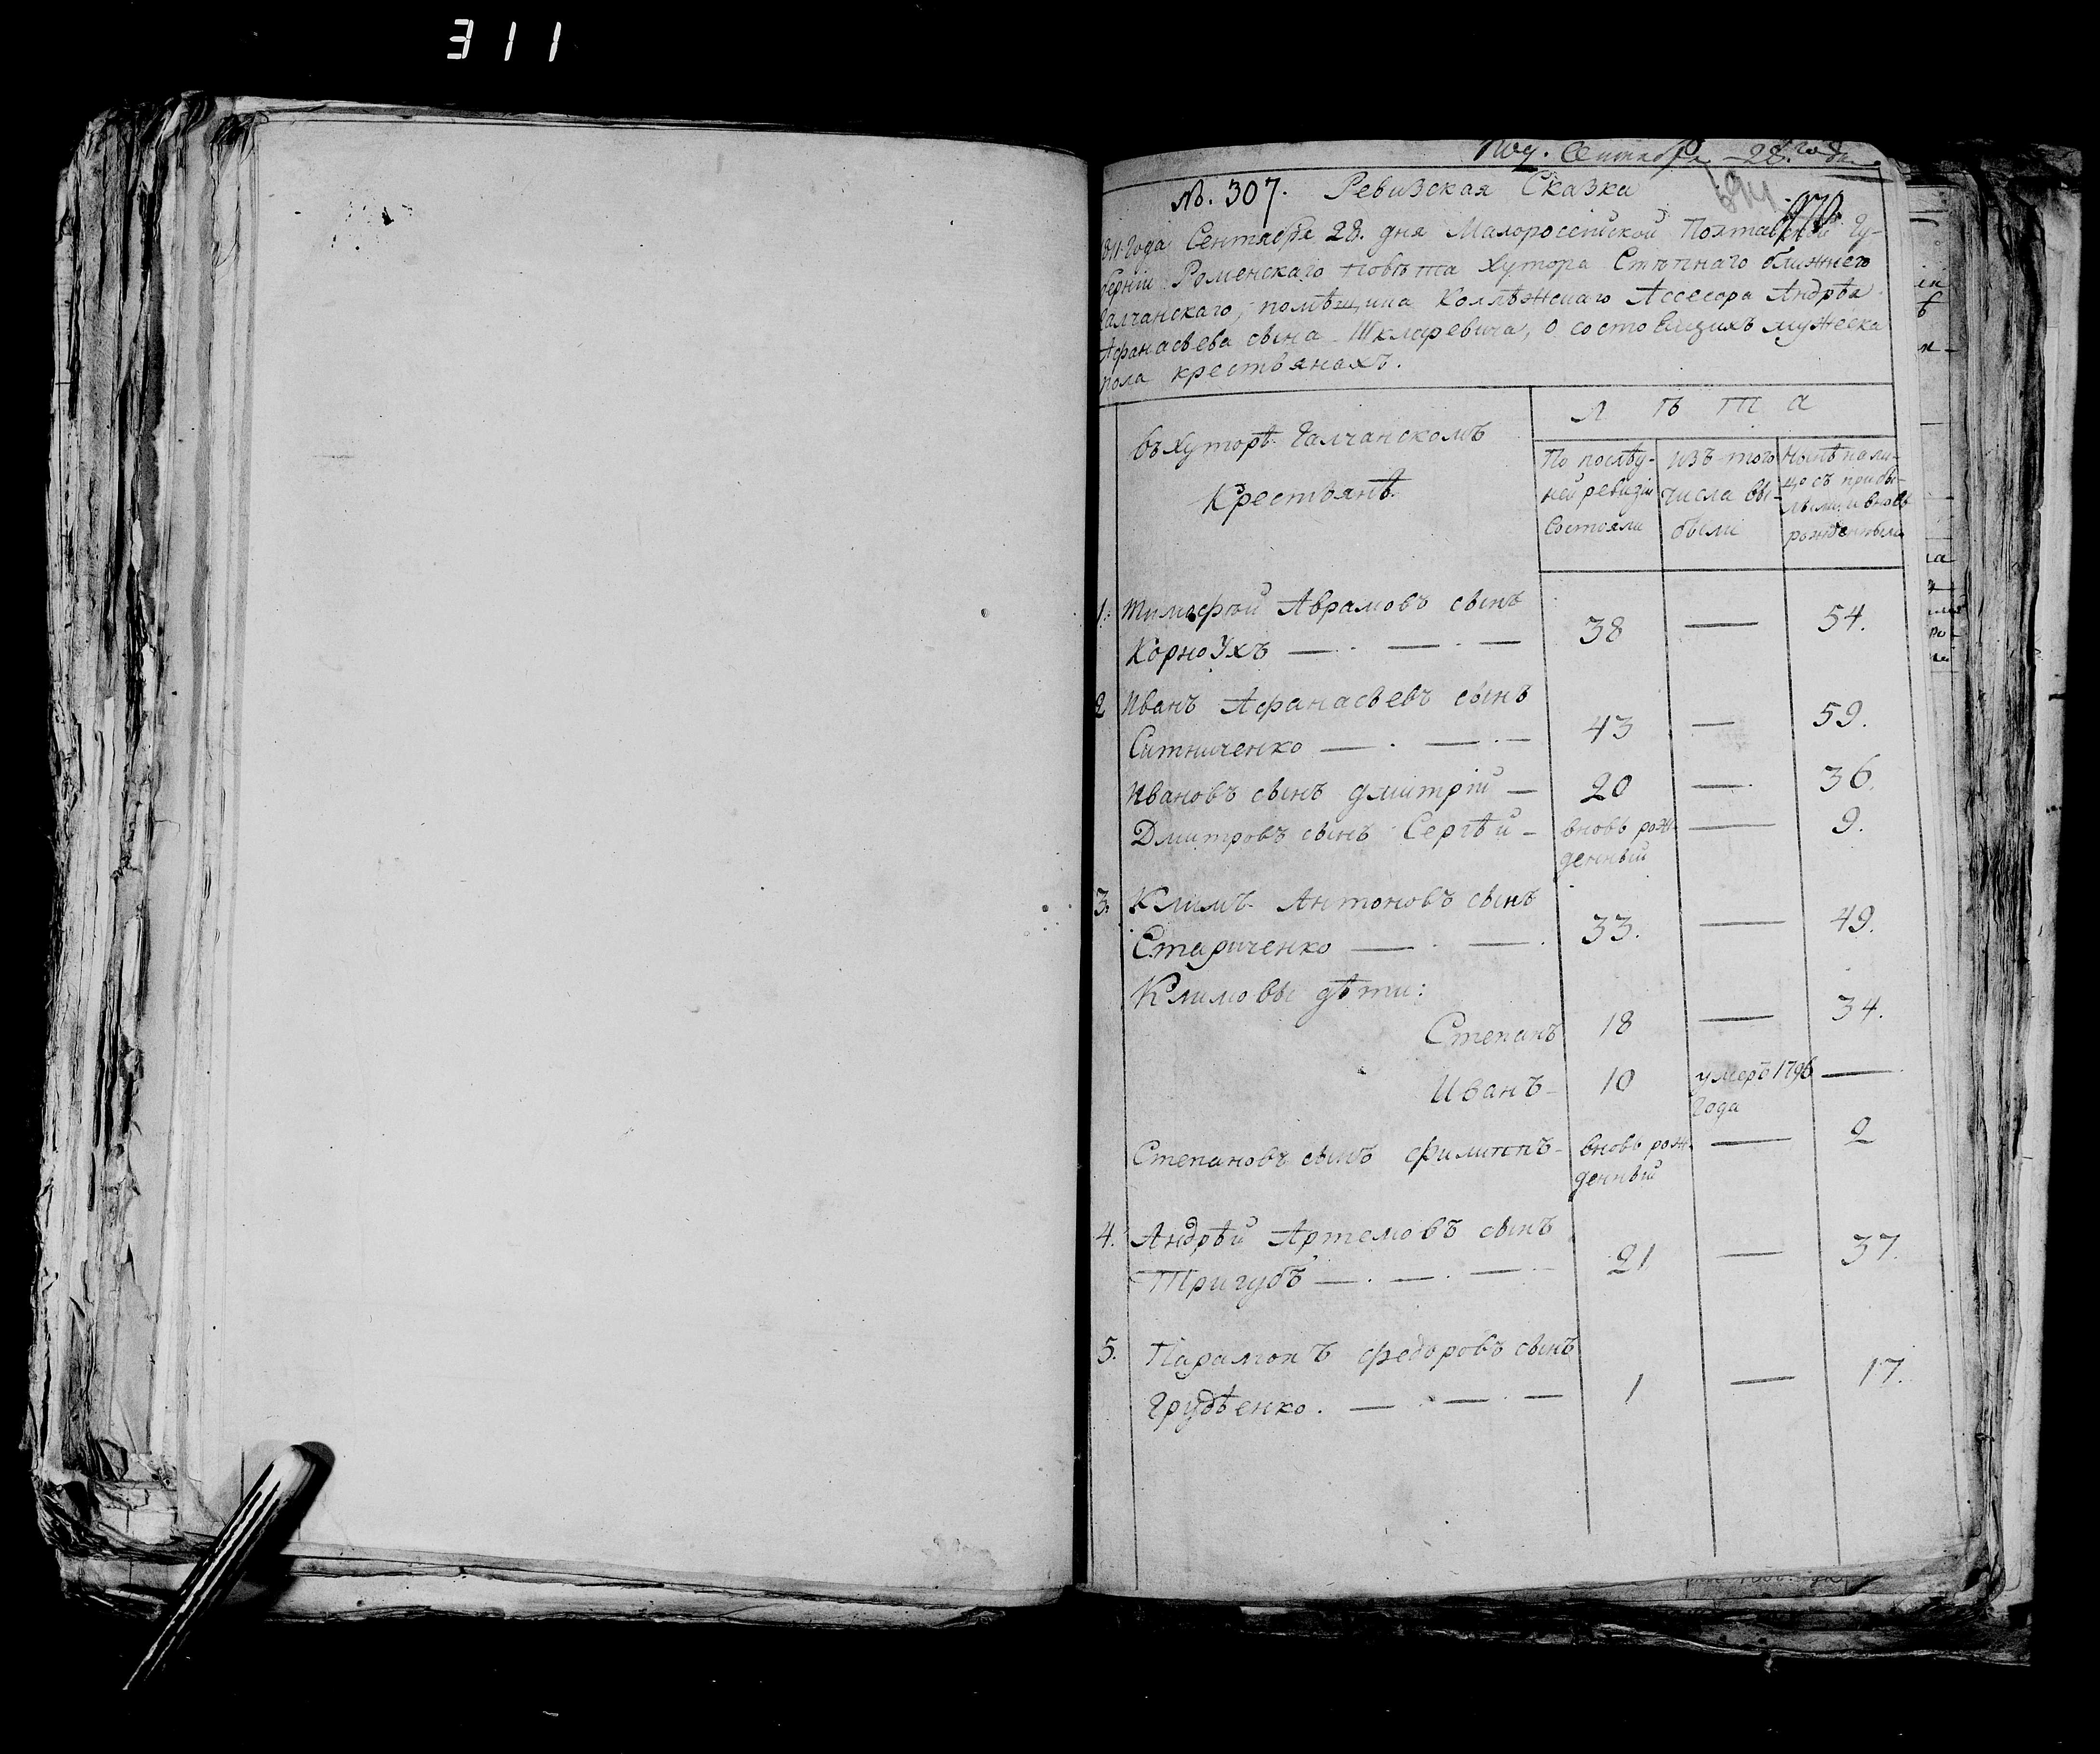 311
Под. Сентября 28го дня
№. 307. Ревизская Сказка
1811 Года Сентября 28. дня Малоросейской Полтавской Гу-
бернїи Роменскаго повѣта Хутора Степнаго ближнего
Галчанскаго, помѣщика Коллѣжскаго Ассесора Андрѣя
Афанасьева сына Шкларевича, о состоящихъ мужеска
пола крестьянахъ.
Л ѣ т а
въ Хуторѣ Галчанскомъ
Крестьянѣ
По послѣд-
ней ревизіи
Состояли
изъ того
числа вы-
были
Нынѣ на ли-
цо съ прибы-
лыми, и вновь
рожденными
1. Тимофѣй Аврамовъ сынъ
Корноухъ — . — . — 38 — 54.
2 Иванъ Афанасьевъ сынъ
Ситниченко — . — . — 43 — 59.
Ивановъ сынъ Дмитрій — 20 — 36.
Дмитровъ сынъ Сергѣй - вновь рож- — 9.
денный
3. Климъ Антоновъ сынъ
Стариченко — . — . 33. — 49.
Климовы дѣти:
Степанъ 18 — 34.
Иванъ - 10 умеръ 1796 —
Года
Степановъ сынъ Филиппъ - вновь рож- — 2
денный
4. Андрѣй Артемовъ сынъ
Тригубъ — . — . — 21 — 37.
5. Парамонъ Федоровъ сынъ
Грудѣенко. — . — . — 1 — 17.